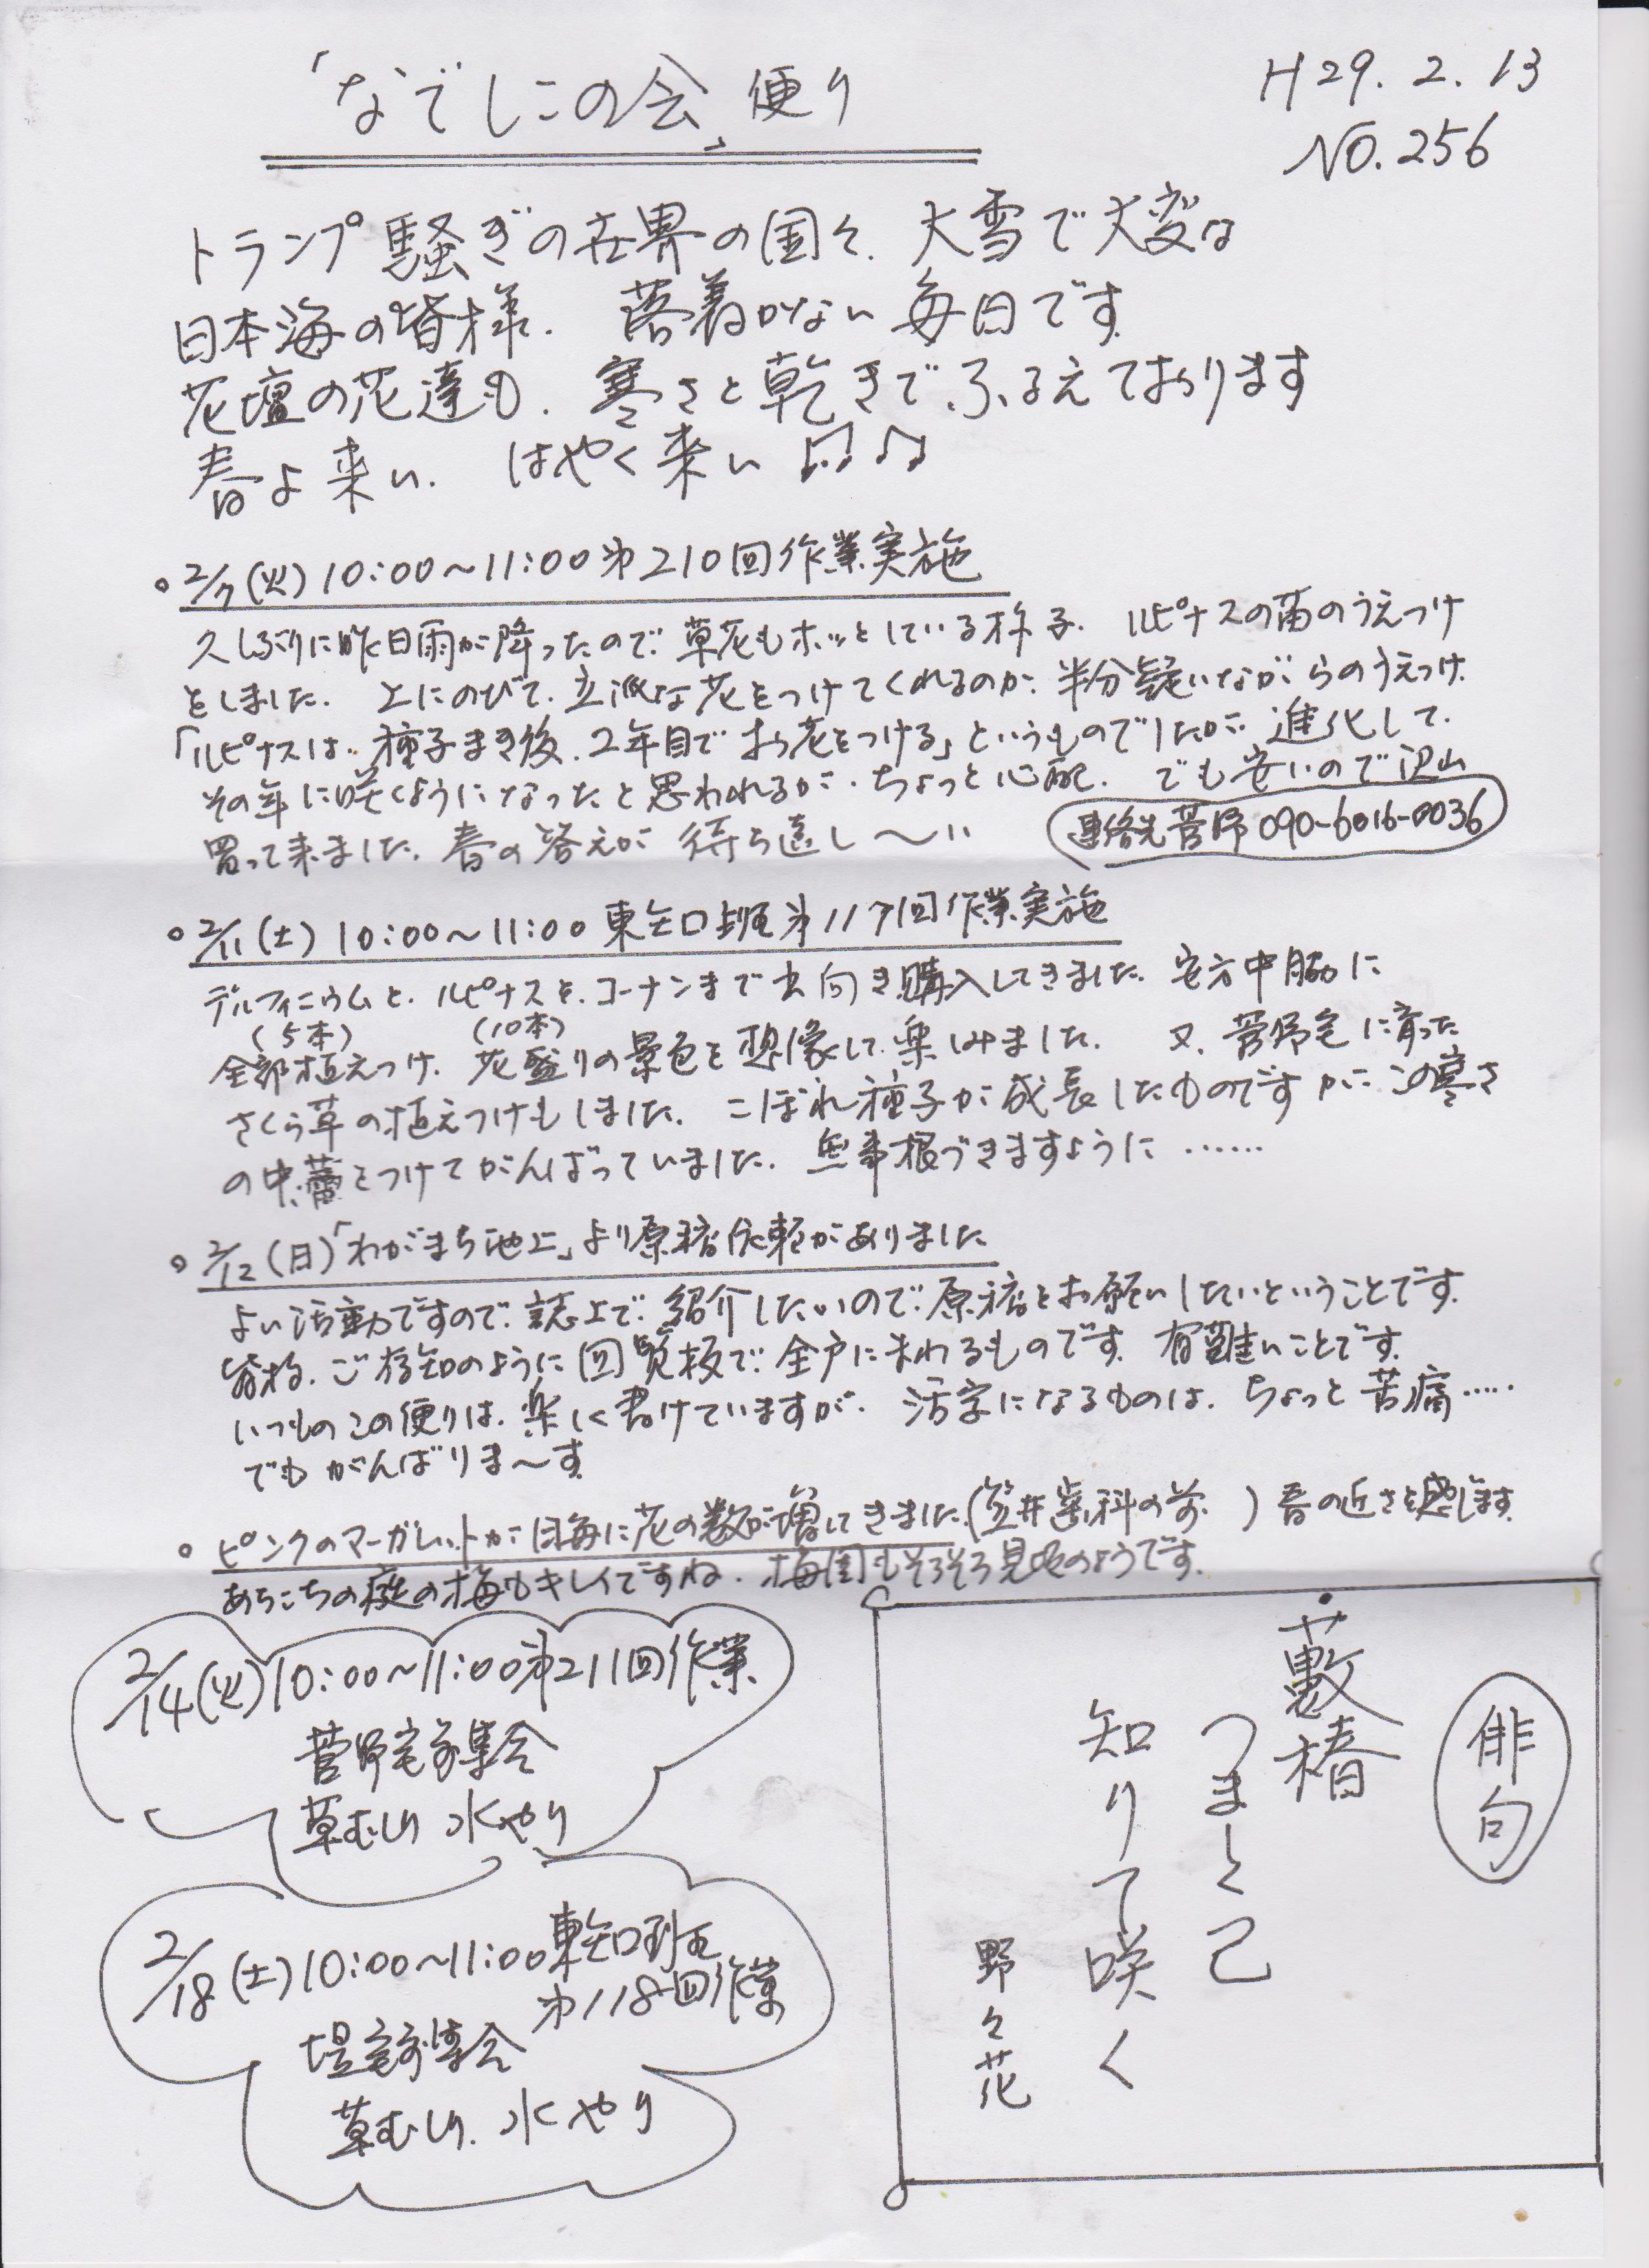 「なでしこの会」便り
H29.2.13
NO.256
トランプ騒ぎの世界の国々、大雪で大変な
日本海の皆様、落着かない毎日です
花壇の花達も、寒さと乾きで、ふるえております
春よ来い、はやく来い ♫♫
○2/7(火)10:00〜11:00第210回作業実施
久しぶりに昨日雨が降ったので、草花もホッとしている様子、ルピナスの苗のうえつけ
をしました。上にのびて、立派な花をつけてくれるのか、半分疑いながらのうえつけ。
「ルピナスは、種子まき後、2年目でお花をつける」というものでしたが、進化して、
その年に咲くようになったと思われるが、ちょっと心配、でも安いので沢山
買って来ました。春の答えが待ち遠し〜い
連絡先菅野090-6016-0036
○2/11(土)10:00〜11:00東矢口班第117回作業実施
デルフィニウムと、ルピナスを、コーナンまで出向き購入してきました。安方中脇に
(5本) (10本)
全部植えつけ、花盛りの景色を想像して、楽しみました。又、菅野宅に育った
さくら草の植えつけもしました。こぼれ種子が成長したものですが、この寒さ
の中、蕾をつけてがんばっていました。無事根づきますように……
○2/12(日)「わがまち池上」より原稿依頼がありました
よい活動ですので、誌上で、紹介したいので、原稿をお願いしたいということです。
皆様、ご存知のように回覧板で、全戸にまわるものです。有難いことです。
いつものこの便りは、楽しく書けていますが、活字になるものは、ちょっと苦痛……
でもがんばりま〜す
○ピンクのマーガレットが日毎に花の数が増してきました。(笠井歯科の前 )春の近さを感じます。
あちこちの庭の梅もキレイですね。梅園もそろそろ見頃のようです。
2/14(火)10:00〜11:00第211回作業
菅野宅前集合
草むしり 水やり
2/18(土)10:00〜11:00東矢口班
第118回作業
堤宅前集合
草むしり、水やり
俳句
藪椿
つましく己
知りて咲く
野々花